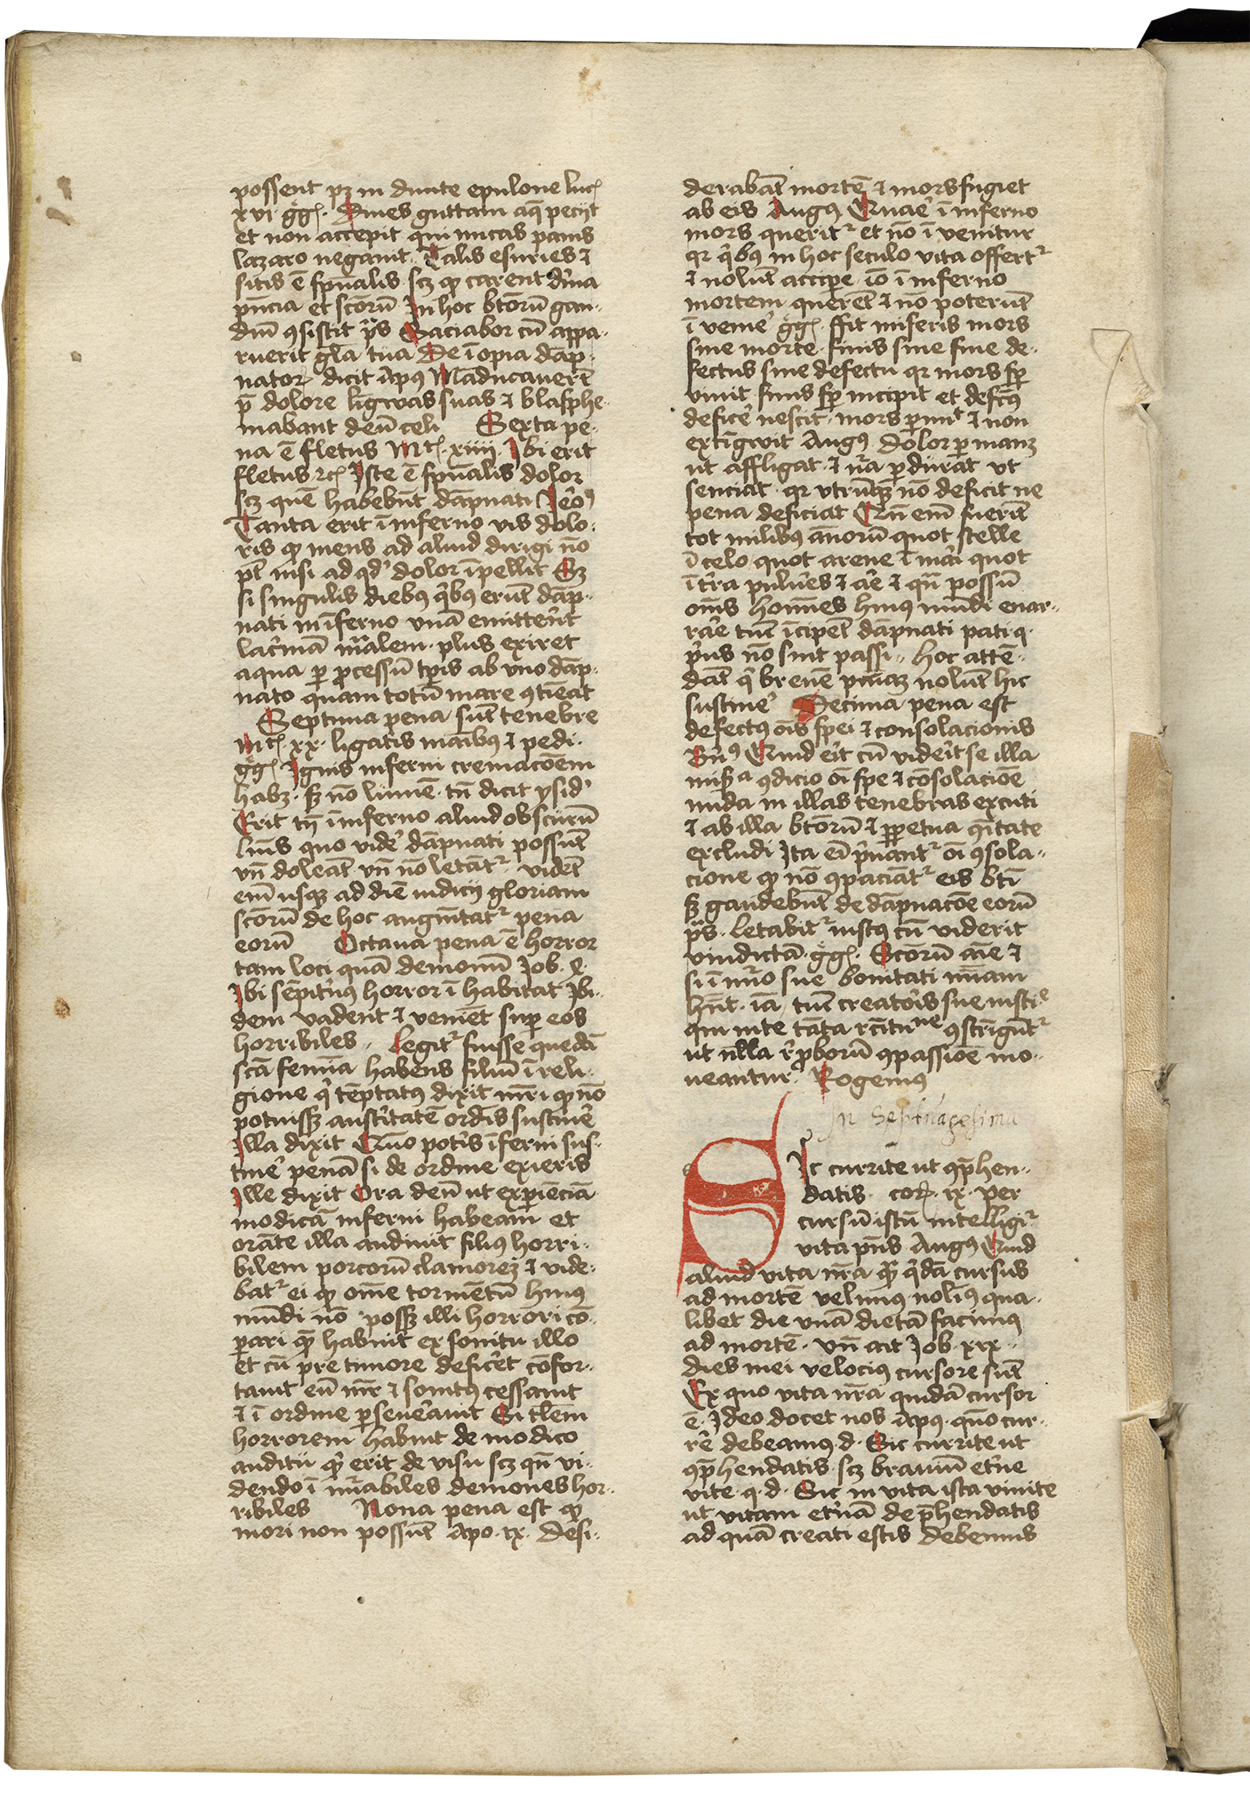 possent pꝫ in diuite epulone luc̄
xvi gg̃. Diues guttam aq̄ pecijt
et non accepit qui micas panis
lazaro negauit. Talis esuries ⁊
sitis ē sp̄ualis scꝫ ꝙ carent diīna
p̄ncia et sc̄orū In hoc bt̄orū gau-
diū ꝯsistit p̄s Saciabor cū appa-
ruerit gl̄a tua De īopia dāp-
natoꝝ dicit āpꝰ Māducauerūt
p̄ dolore ligwas suas ⁊ blasphe-
mabant deū celi Sexta pe-
na ē fletus Mt̄. xiiii. Ibi erit
fletus ⁊c̄ Iste ē sp̄ualis dolor
scꝫ quē habebūt dāpnati Jeroꝰ
Tanta erit ī inferno vis dolo-
ris ꝙ mens ad aliud dirigi nō
pt̄ nisi ad qd' dolor īpellit Eꝫ
si singulis diebꝰ qͥbꝰ erūt dāp-
nati in īferno vnā emitterēt
lacͥmā mͣalem. plus exiret
aqua ꝑ ꝓcessū tꝑis ab vno dāp-
nato quam totū mare ꝯtīeat
Septima pena sūt tenebre
Mt̄ xx. ligatis maībꝰ ⁊ pedi.
gg̃ Ignis inferni cremacōem
habꝫ. sꝫ nō lumē. tn̄ dicit ysid'
Erit tn̄ ī inferno aliud obscurū
lum̄s quo vide' dāpnati possūt
vn̄ doleāt vn̄ nō letāt'. vidēt
em̄ usqꝫ ad diē iudicij gloriam
sc̄orū de hoc augm̄tat' pena
eorū Octaua pena ē horror
tam loci quā demonū Job. x.
Ibi sēpit'nꝰ horror ī habitat Ibi-
dem vadent ⁊ veniēt suꝑ eos
horribiles Legit' fuisse quedā
sc̄a femīa habens filiū ī reli-
gione qͥ tēptatus dixit mr̄i ꝙ nō
potuissꝫ aust'itatē ordīs sustine'
Illa dixit Quō pot'is īferni sus-
tine' penā si de ordine exieris
Ille dixit Ora deū ut experiēciā
modicā inferni habeam et
orāte illa audiuit filius horri-
bilem porcorū clamorem ⁊ vide-
bat' ei ꝙ om̄e tormētū huiꝰ
mūdi nō possꝫ illi horrori cō-
ꝑari quē habuit ex sonitu illo
et cū pre timore defic'et cōfor-
tauit eū mr̄ ⁊ sonitꝰ cessauit
⁊ ī ordine ꝑseue'auit Si tl̄em
horrorem habuit de modico
auditu qͥ erit de visu scꝫ qn̄ vi-
dendo ī mͥabiles demones hor-
ribiles Nona pena est ꝙ
mori non possūt Apo. ix. Desi-
derabāt mortē ⁊ mors fugiet
ab eis Augꝰ Quae' ī inferno
mors querit' et nō ī venitur
qr qͥbꝰ in hoc seculo vita offert'
⁊ nolūt accipe. iō ī inferno
mortem querēt ⁊ nō poterūt
ī venie' gg̃. ffit miseris mors
sine morte. finis sine fine de-
fectus sine defectu qr mors sꝑ
viuit finis sꝑ incipit et defcꝰ
defice' nescit. mors ꝑimit ⁊ non
extīgwit Augꝰ Dolor ꝑmanꝫ
ut affligat. ⁊ nͣa ꝑdurat ut
senciat. qr vtrūqꝫ nō deficit ne
pena deficiat Cūn em̄ fuerīt
tot milibꝰ annorū quot stelle
ī celo quot arene ī mari quot
ī tr̄a pulue'es ⁊ ae'e ⁊ qn̄ possū
om̄s homīes huiꝰ mūdi enar-
rare tūc īcipēt dāpnati pati q.
pͥus nō sint passi. hoc attē-
dāt qͥ breuē pnīaꝫ nolūt hic
sustine' Decima pena est
defectꝰ oīs spei ⁊ consolacionis
Bn̄ꝰ Quid e'it cū vide'it se illa
mis͛a ꝯdicio oī spe ⁊ cōsolacōe
nuda in illas tenebras excuti
⁊ ab illa bt̄orū ⁊ ꝑpetua cͥtate
excludi Ita eī pͥuant' oī ꝯsola-
cione ꝙ nō ꝯpaciāt' eis bt̄i
sꝫ gaudebūt de dāpnacōe eorū
p̄s. letabit' iustꝰ cū viderit
vindictā. gg̃. Sc̄orū aīe ⁊
si ī nͥo sue bonitati mīam
hn̄t. iā tūc creatoris sue iusticͤ
qui iūcte tāta rectitu͏ͫͤ ꝯstrīgūt'
ut nulla rͤꝓborū ꝯpassiōe mo-
ueantur. Rogemus
In Septuagesima
Sic currite ut ꝯp̄hen-
datis. cor. ix. per
cursū istū intelligi'
vita pn̄s Augꝰ Quid
aliud vita nr̄a qͣ qͥdā cursus
ad mortē velimꝰ nolimꝰ qua-
libet die vnā dietā facimꝰ
ad mortē. vn̄ ait Job. xix..
dies mei velocius cursore sūt
Ex quo vita nr̄a quidā cursor
ē. Ideo docet nos āpꝰ. quō cur-
re' debeamꝰ. d. Sic currite ut
ꝯp̄hendatis scꝫ brauiū et'ne
vite. q. d. Sic in vita ista viuite
ut vitam et'nā dep̄hendatis
ad quā creati estis debemus